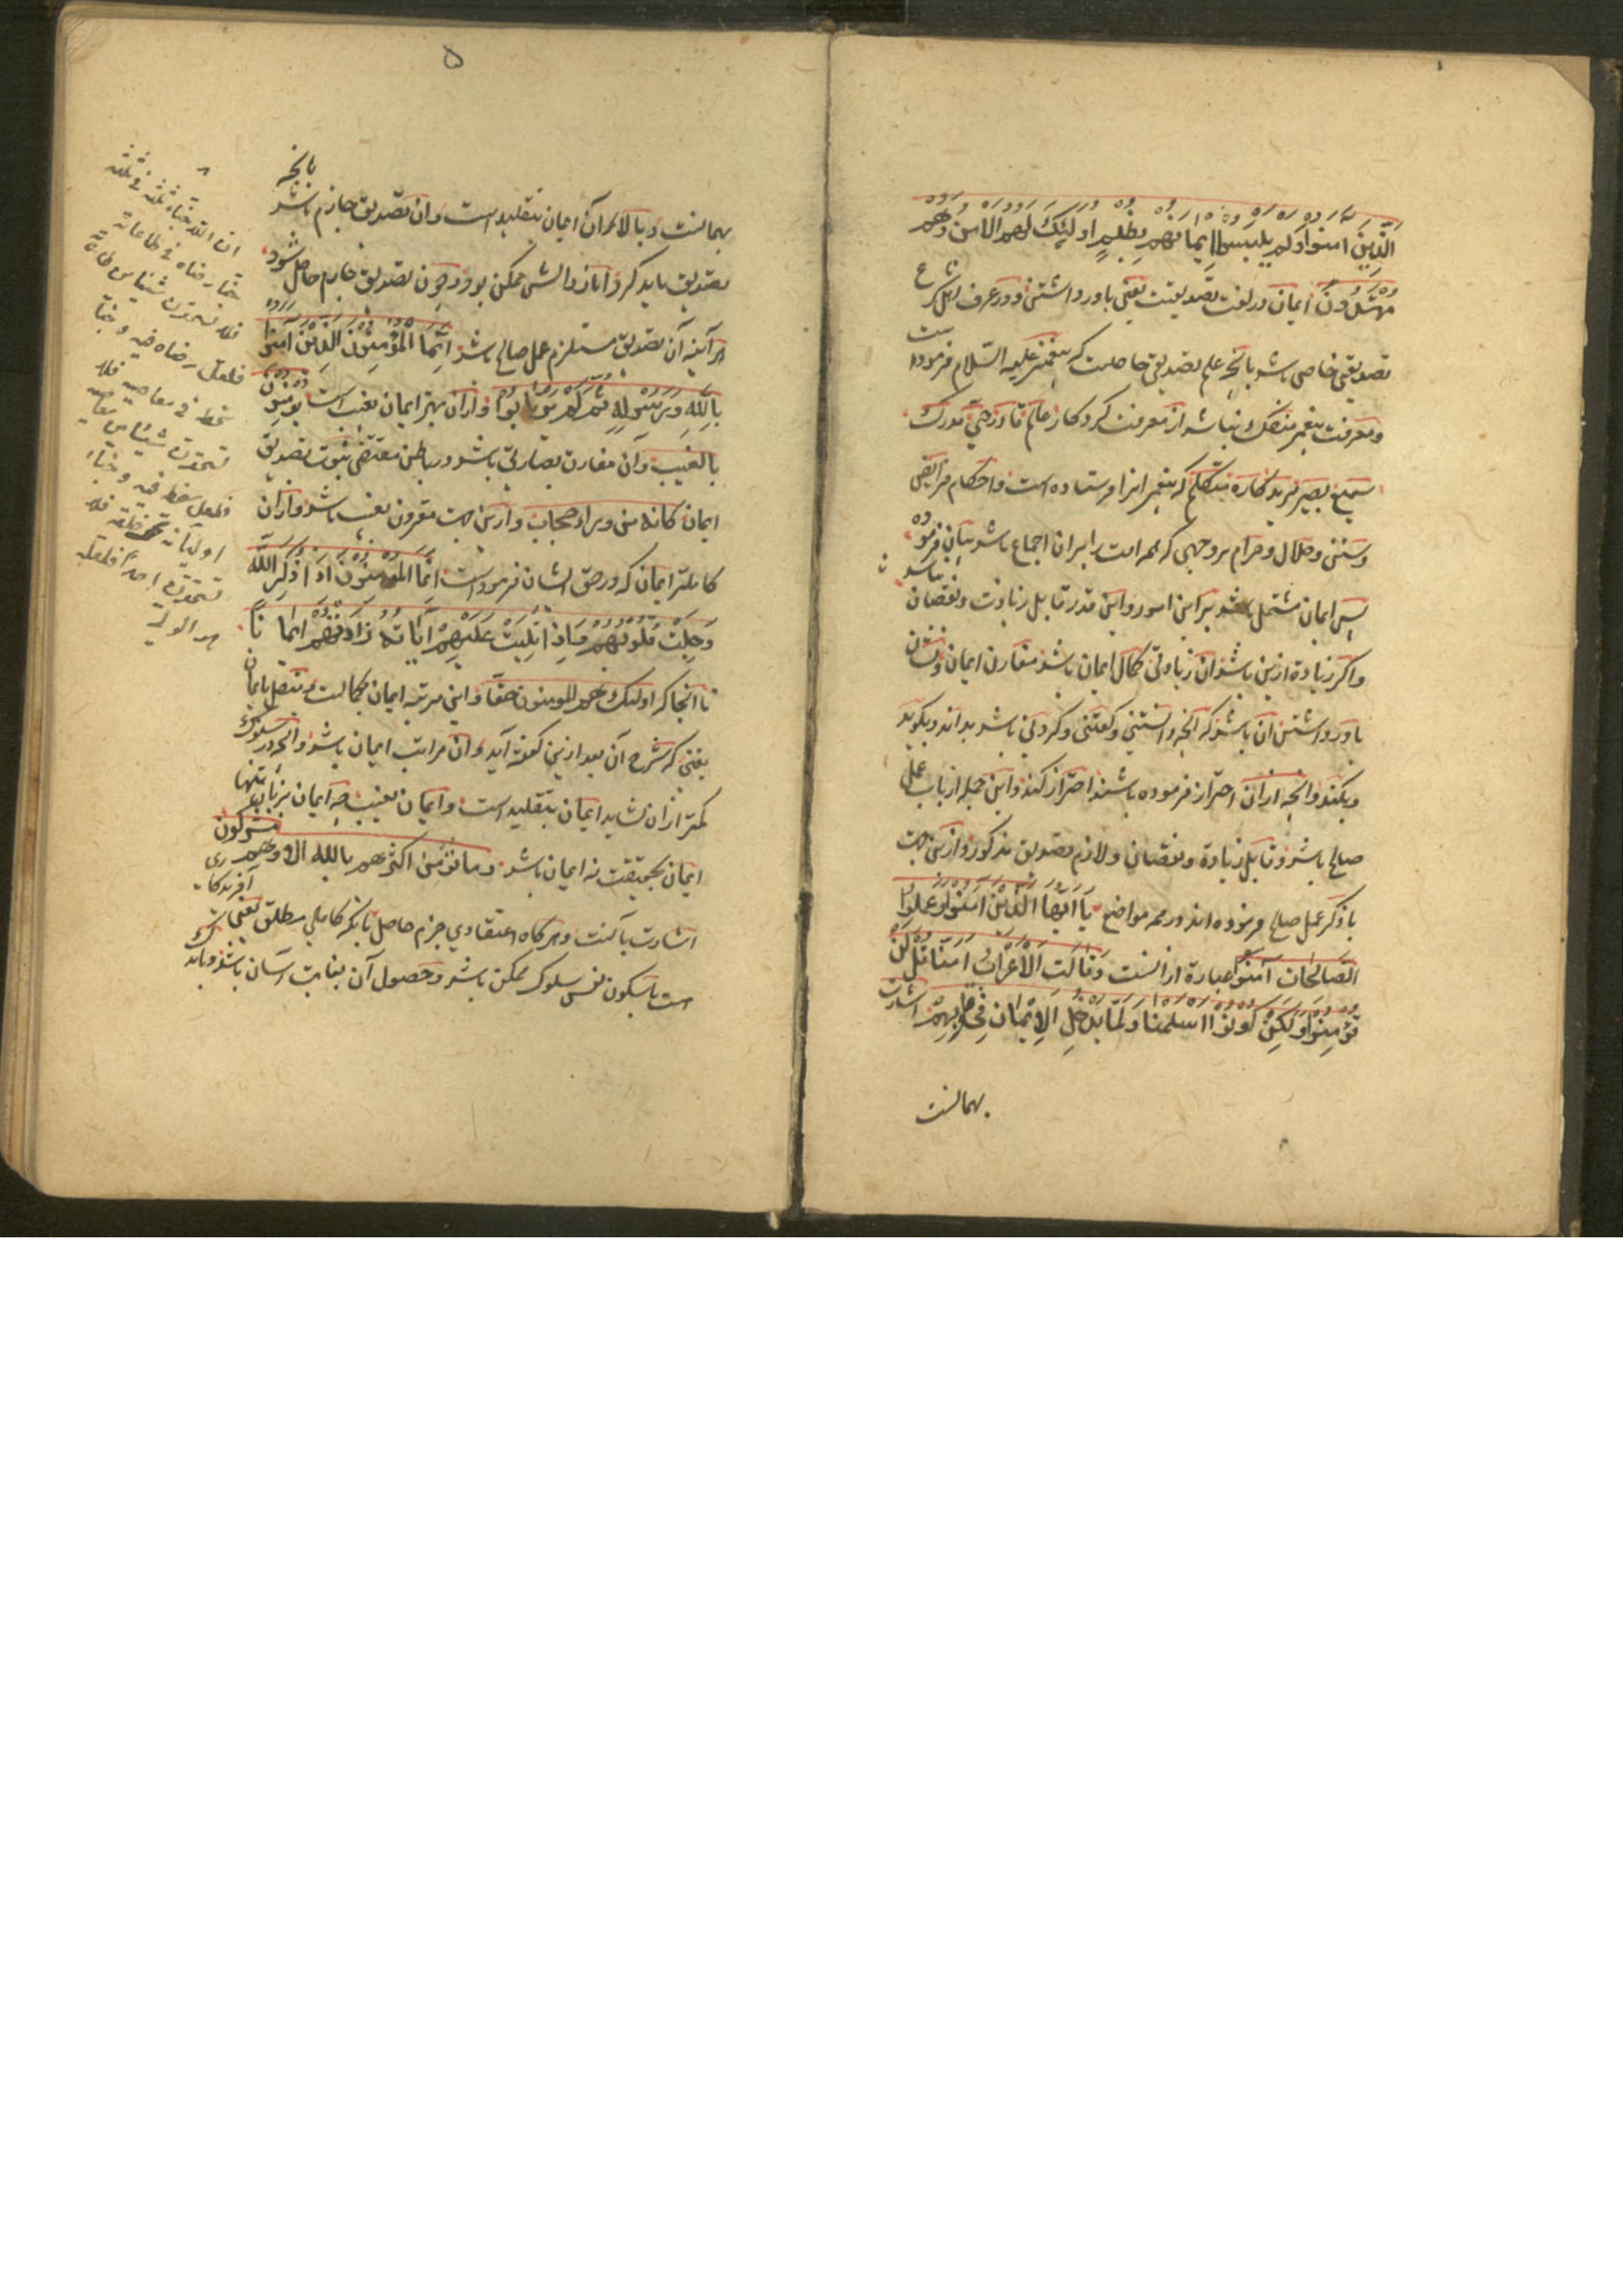 الَّذِينَ آمنوا ولم يلبسوا ايمانهم بظلمٍ اولئِكَ لهم الامن وَهم
مهتدون ايمان در لغت تصديقست يعنى باور داشتن و در عرف اهل شرع
تصديقى خاص باشد بانچه علم تصديقى حاصلست كه پيغمبر عليه السّلام فرموده است
و معرفت پيغمبر منفك نباشد از معرفت كردكار عالم قادر حيّ مدرك
سميع بصير مريد كاره متكلّم كه پيغمبر انرا فرستاده است و احكام فرايض
و سنن و حلال و حرام بر وجهى كه همه امت را بران اجماع باشد بيان فرموده
پس ايمان مشتمل باشد بر اين امور و اين قدر قابل زيادت و نقصان نباشد
و اكر زيادة ازين باشد ان زيادتى كمال ايمان باشد مقارن ايمان و نشان
باور داشتن آن باشد كه انچه دانستنى و كفتنى و كردنى باشد بداند و بكويد
و بكند و انچه ازان احتراز فرموده باشند احتراز كند و اين جمله از باب عمل
صالح باشد و قابل زيادة و نقصان و لازم تصديق مذكور و ازين جهت
با ذكر عمل صالح فرموده اند در همه مواضع يا ايّها الّذين آمنوا و عملوا
الصالحات آمنوا عبارة ازانست وَقالت الاعراب آمنّا قل لن
تؤمنوا ولكن قولوا اسلمنا ولمّا يدخل الايمان فى قلوبهم اشارت
بهمانست
۵
بهمانست و بالاى آن ايمان بتقليد است و ان تصديق جازم باشد بانچه
تصديق بايد كرد اما زوالش ممكن بود و چون تصديق جازم حاصل شود
هرآينه آن تصديق مستلزم عمل صالح باشد انّما المؤمنون الذين آمنوا
باللّه ورسوله ثم لم يرتابوا و ازان بهتر ايمان بغيب است يؤمنون
بالغيب و آن مقارن بصارتى باشد در باطن مقتضى ثبوت تصديق
ايمان كانه من وراء حجاب و ازين جهت مقرون بغيب باشد و ازان
كاملتر ايمان كه در حق ايشان فرموداست انما المؤمنون اذا ذكر اللّه
وجلت قلوبهم واذا تليت عليهم آياته زادتهم ايمانًا
تا انجا كه اولئك هم المومنون حقّا و اين مرتبه ايمان بكمالست و متصل بايمان
يقينى كه شرح آن بعد ازين كفته آيد و ان مراتب ايمان باشد و انچه در سلوك
كمتر ازان نشايد ايمان بتقليد است و ايمان بغيب چه ايمان بزبان تنها
ايمان بحقيقت نه ايمان باشد وما يؤمن اكثرهم باللّه الا وهم مشركون
اشارت بآنست و هر كاه اعتقادى جزم حاصل بانكه كاملى مطلق يعنى آفريدكارى
است با سكون نفس سلوك ممكن باشد و حصول آن بغايت آسان باشد و باندك
ان اللّه خبأ ثلثة فى ثلثة
خبأ رضاه فى طاعاته
فلا تحقرن شيئا من طاعاته
فلعل رضاه فيه وخبأ
سخطه فى معاصيه فلا
تحقرن شيئا من معاصيه
فلعل سخطه فيه وخبأ
اوليائه تحت خلقه فلا
تحقرن احدا فلعله
هو الولى